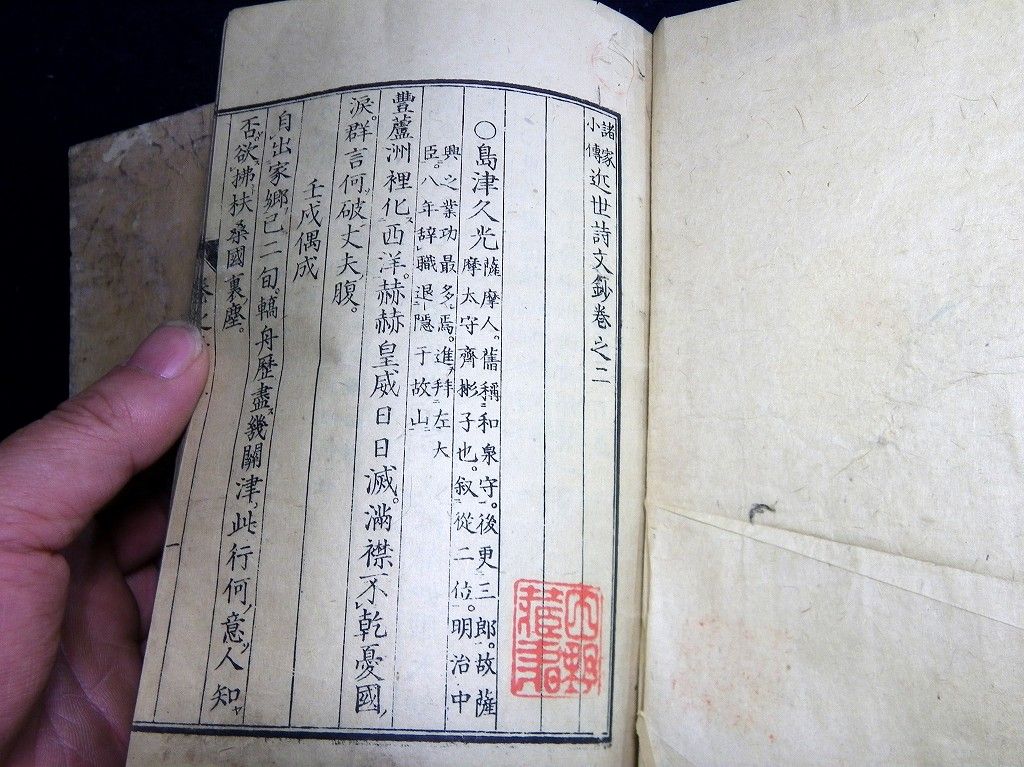 諸家
小傳
近世詩文鈔卷之二
○島津久光
薩摩人。舊稱和泉守。後更三郎。故薩
摩太守齊彬子也。叙從二位。明治中
興之業功最多焉。進拜左大
臣。八年辞職退隱于故山
豐蘆洲裡化西洋。赫赫皇威日日滅。滿襟不乾憂國
淚。群言何破丈夫腹。
壬戌偶成
自出家鄉已二旬。轎舟歷盡幾關津。此行何意人知
否。欲拂扶桑國裏塵。
卷之